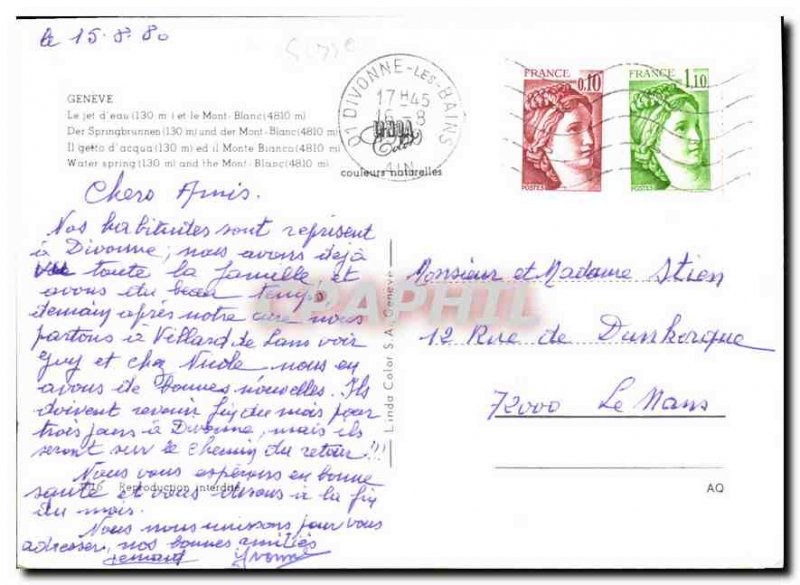 le 15.8.80
Suisse
GENEVE
Le jet d'eau (130 m) et le Mont-Blanc (4810 m)
Der Springbrunnen (130 m) und der Mont-Blanc (4810 m)
Il getto d'acqua (130 m) ed il Monte Bianco (4810 m)
Water spring (130 m) and the Mont-Blanc (4810 m)
couleurs naturelles
01 DIVONNE-LES-BAINS
17H45
16-8
AIN
FRANCE
0,10
POSTES
FRANCE
1,10
POSTES
Chers Amis.
Nos habitudes sont reprisent
à Divonne; nous avons déjà
vu toute la famille et
avons du beau temps
demain après notre cure nous
partons à Villard de Lans voir
Guy et chez Nicole nous en
avons de bonnes nouvelles. Ils
doivent revenir fin du mois pour
trois jours à Divonne, mais ils
seront sur le chemin du retour!!!
Nous vous espérons en bonne
santé et vous disons à la fin
du mois.
Nous nous unissons pour vous
adresser, nos bonnes amitiés
Yvonne
Reproduction interdite
Linda Color S.A., Genève
CPAPHIL
Monsieur et Madame Stien
12 Rue de Dunkerque
72000 Le Mans
AQ